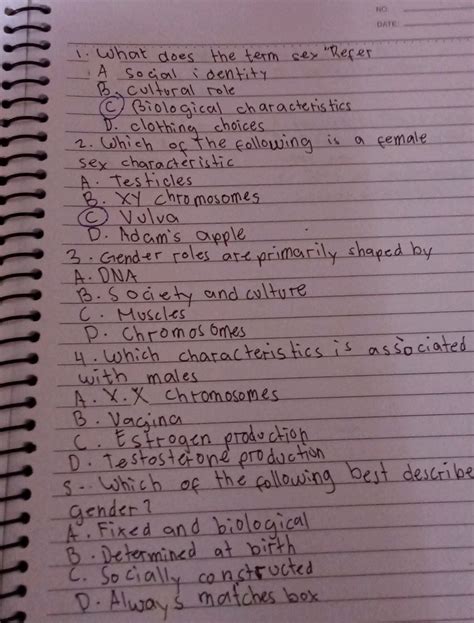 NO.
DATE:
1. What does the term sex "Refer
A Social identity
B. cultural role
C Biological characteristics
D. clothing choices
2. Which of the following is a female
sex characteristic
A. Testicles
B. XY chromosomes
C Vulva
D. Adam's apple
3. Gender roles are primarily shaped by
A. DNA
B. Society and culture
C. Muscles
D. Chromosomes
4. Which characteristics is associated
with males
A. X.X chromosomes
B. Vagina
C. Estrogen production
D. Testosterone production
5.. Which of the following best describe
gender?
A. Fixed and biological
B. Determined at birth
C. Socially constructed
D. Always matches box